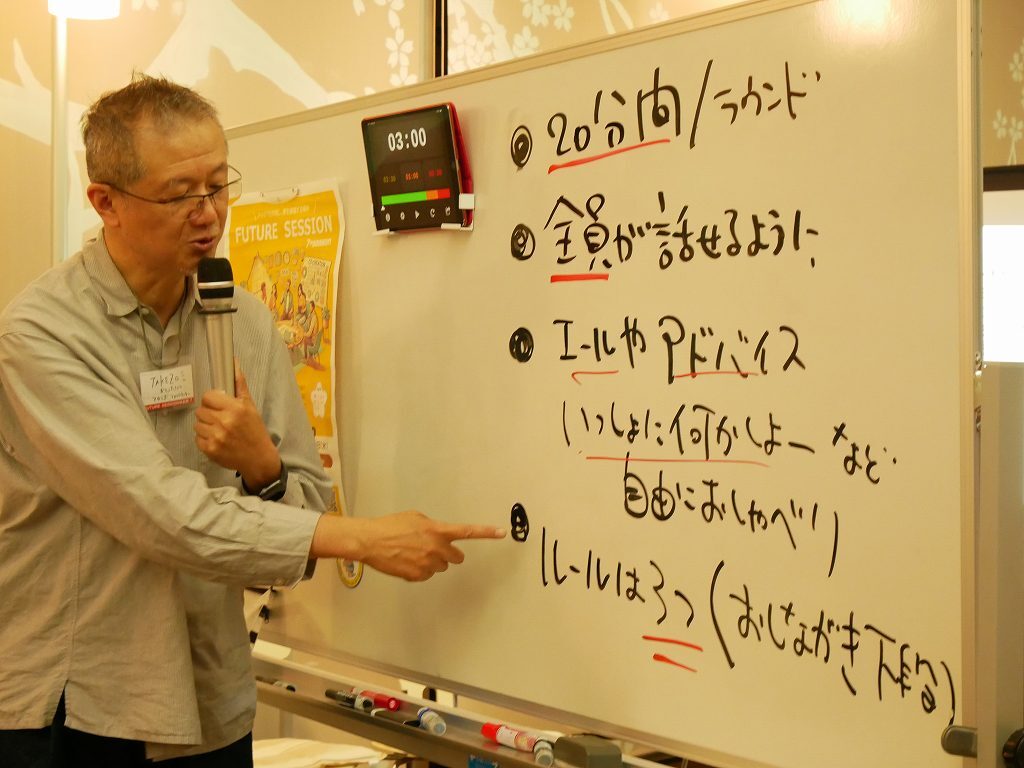 20分間/ラウンド
全員が話せるように
エールやアドバイス
いっしょに何かしよー など
自由におしゃべり
ルールは3つ(おしながき下段)
03:00
FUTURE SESSION
TAKEZO